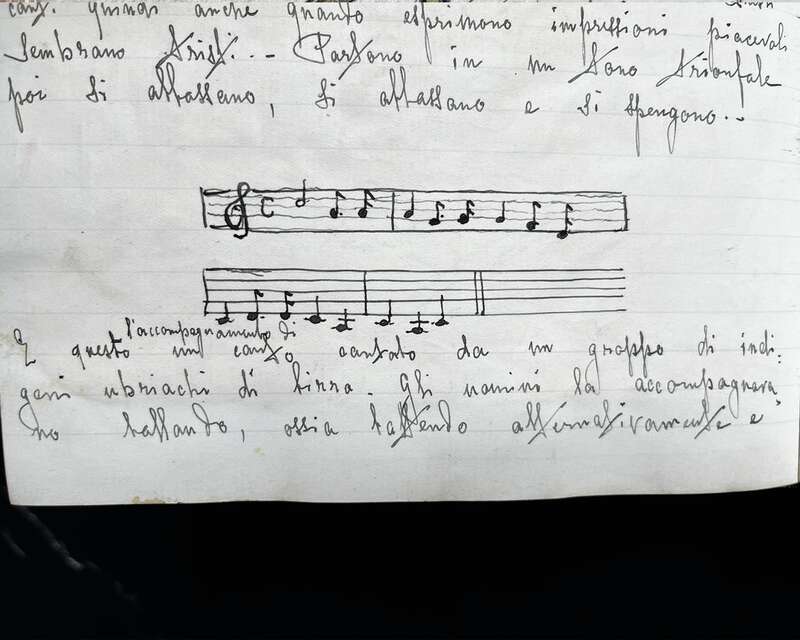 quindi anche quando esprimono impressioni piacevoli
sembrano tristi... Partono in un tono trionfale
poi si abbassano, si abbassano e si spengono...
l'accompagnamento di
È questo un canto cantato da un gruppo di indi:
geni ubriachi di birra. Gli uomini la accompagnava
no ballando, ossia battendo alternativamente e